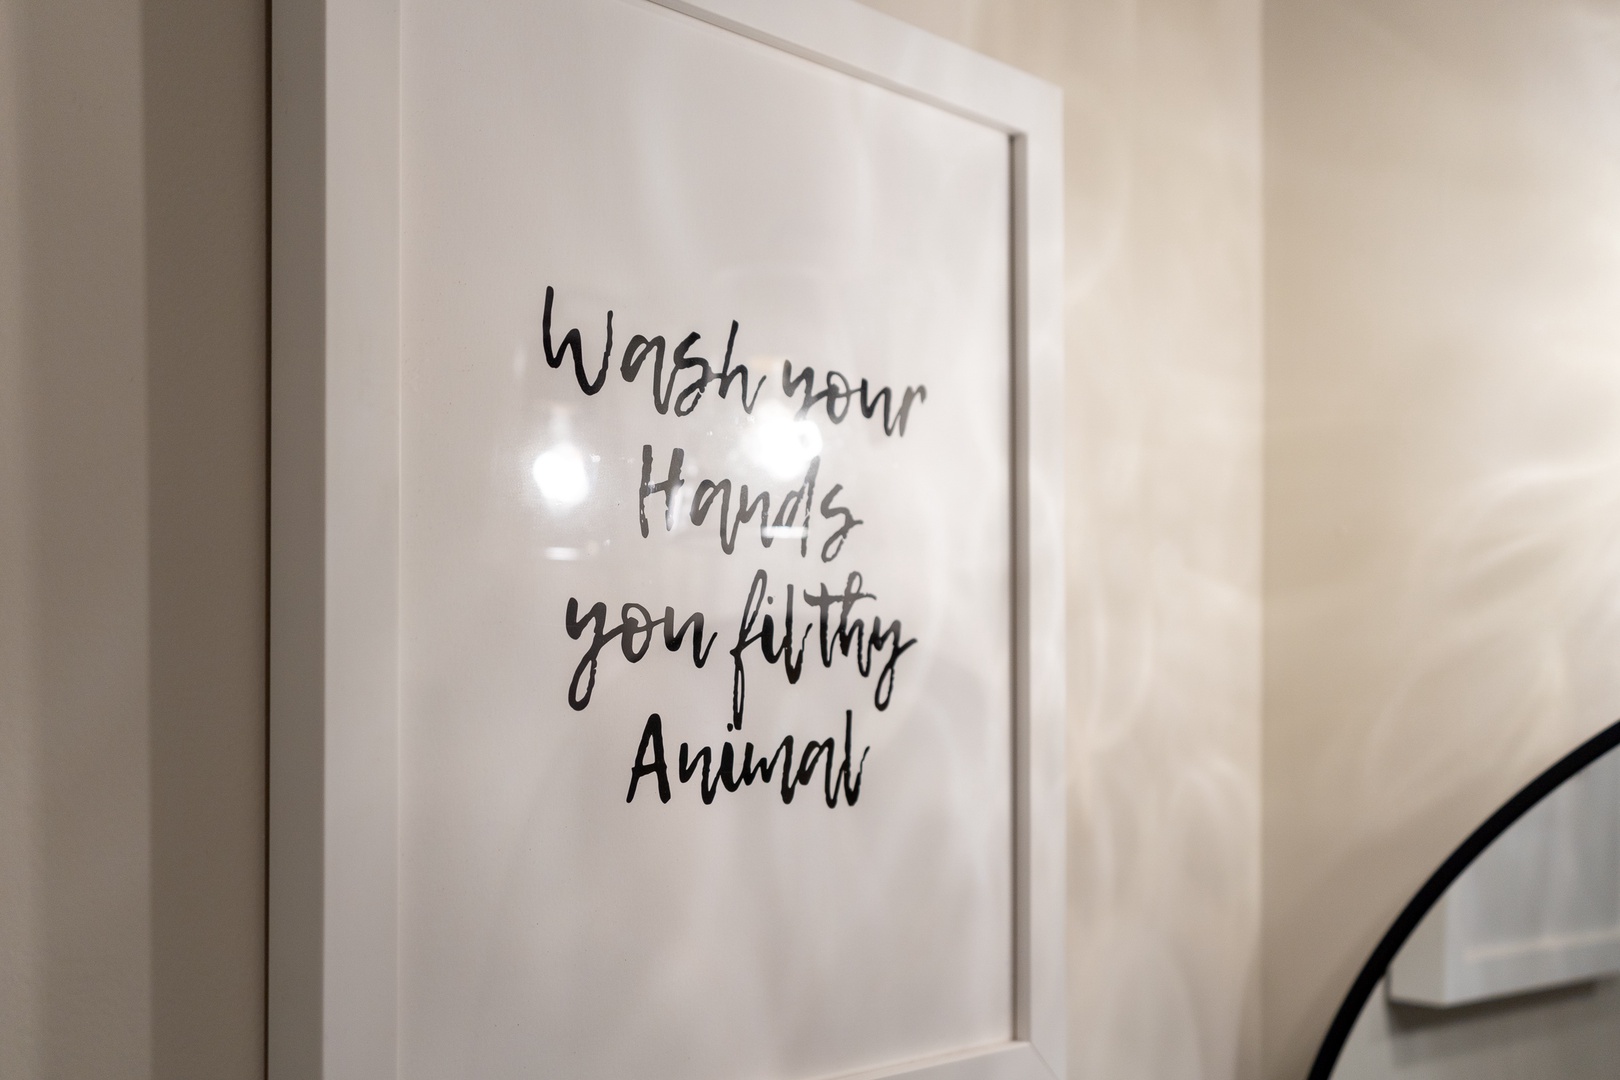 Wash your
Hands
you filthy
Animal